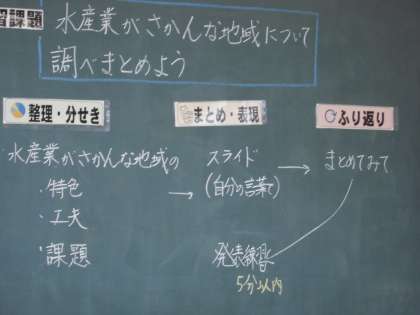 習課題
水産業がさかんな地域について
調べまとめよう
整理・分せき
まとめ・表現
ふり返り
水産業がさかんな地域の
・特色
・工夫
・課題
→
スライド
(自分の言葉で)
→
まとめてみて
発表練習
5分以内